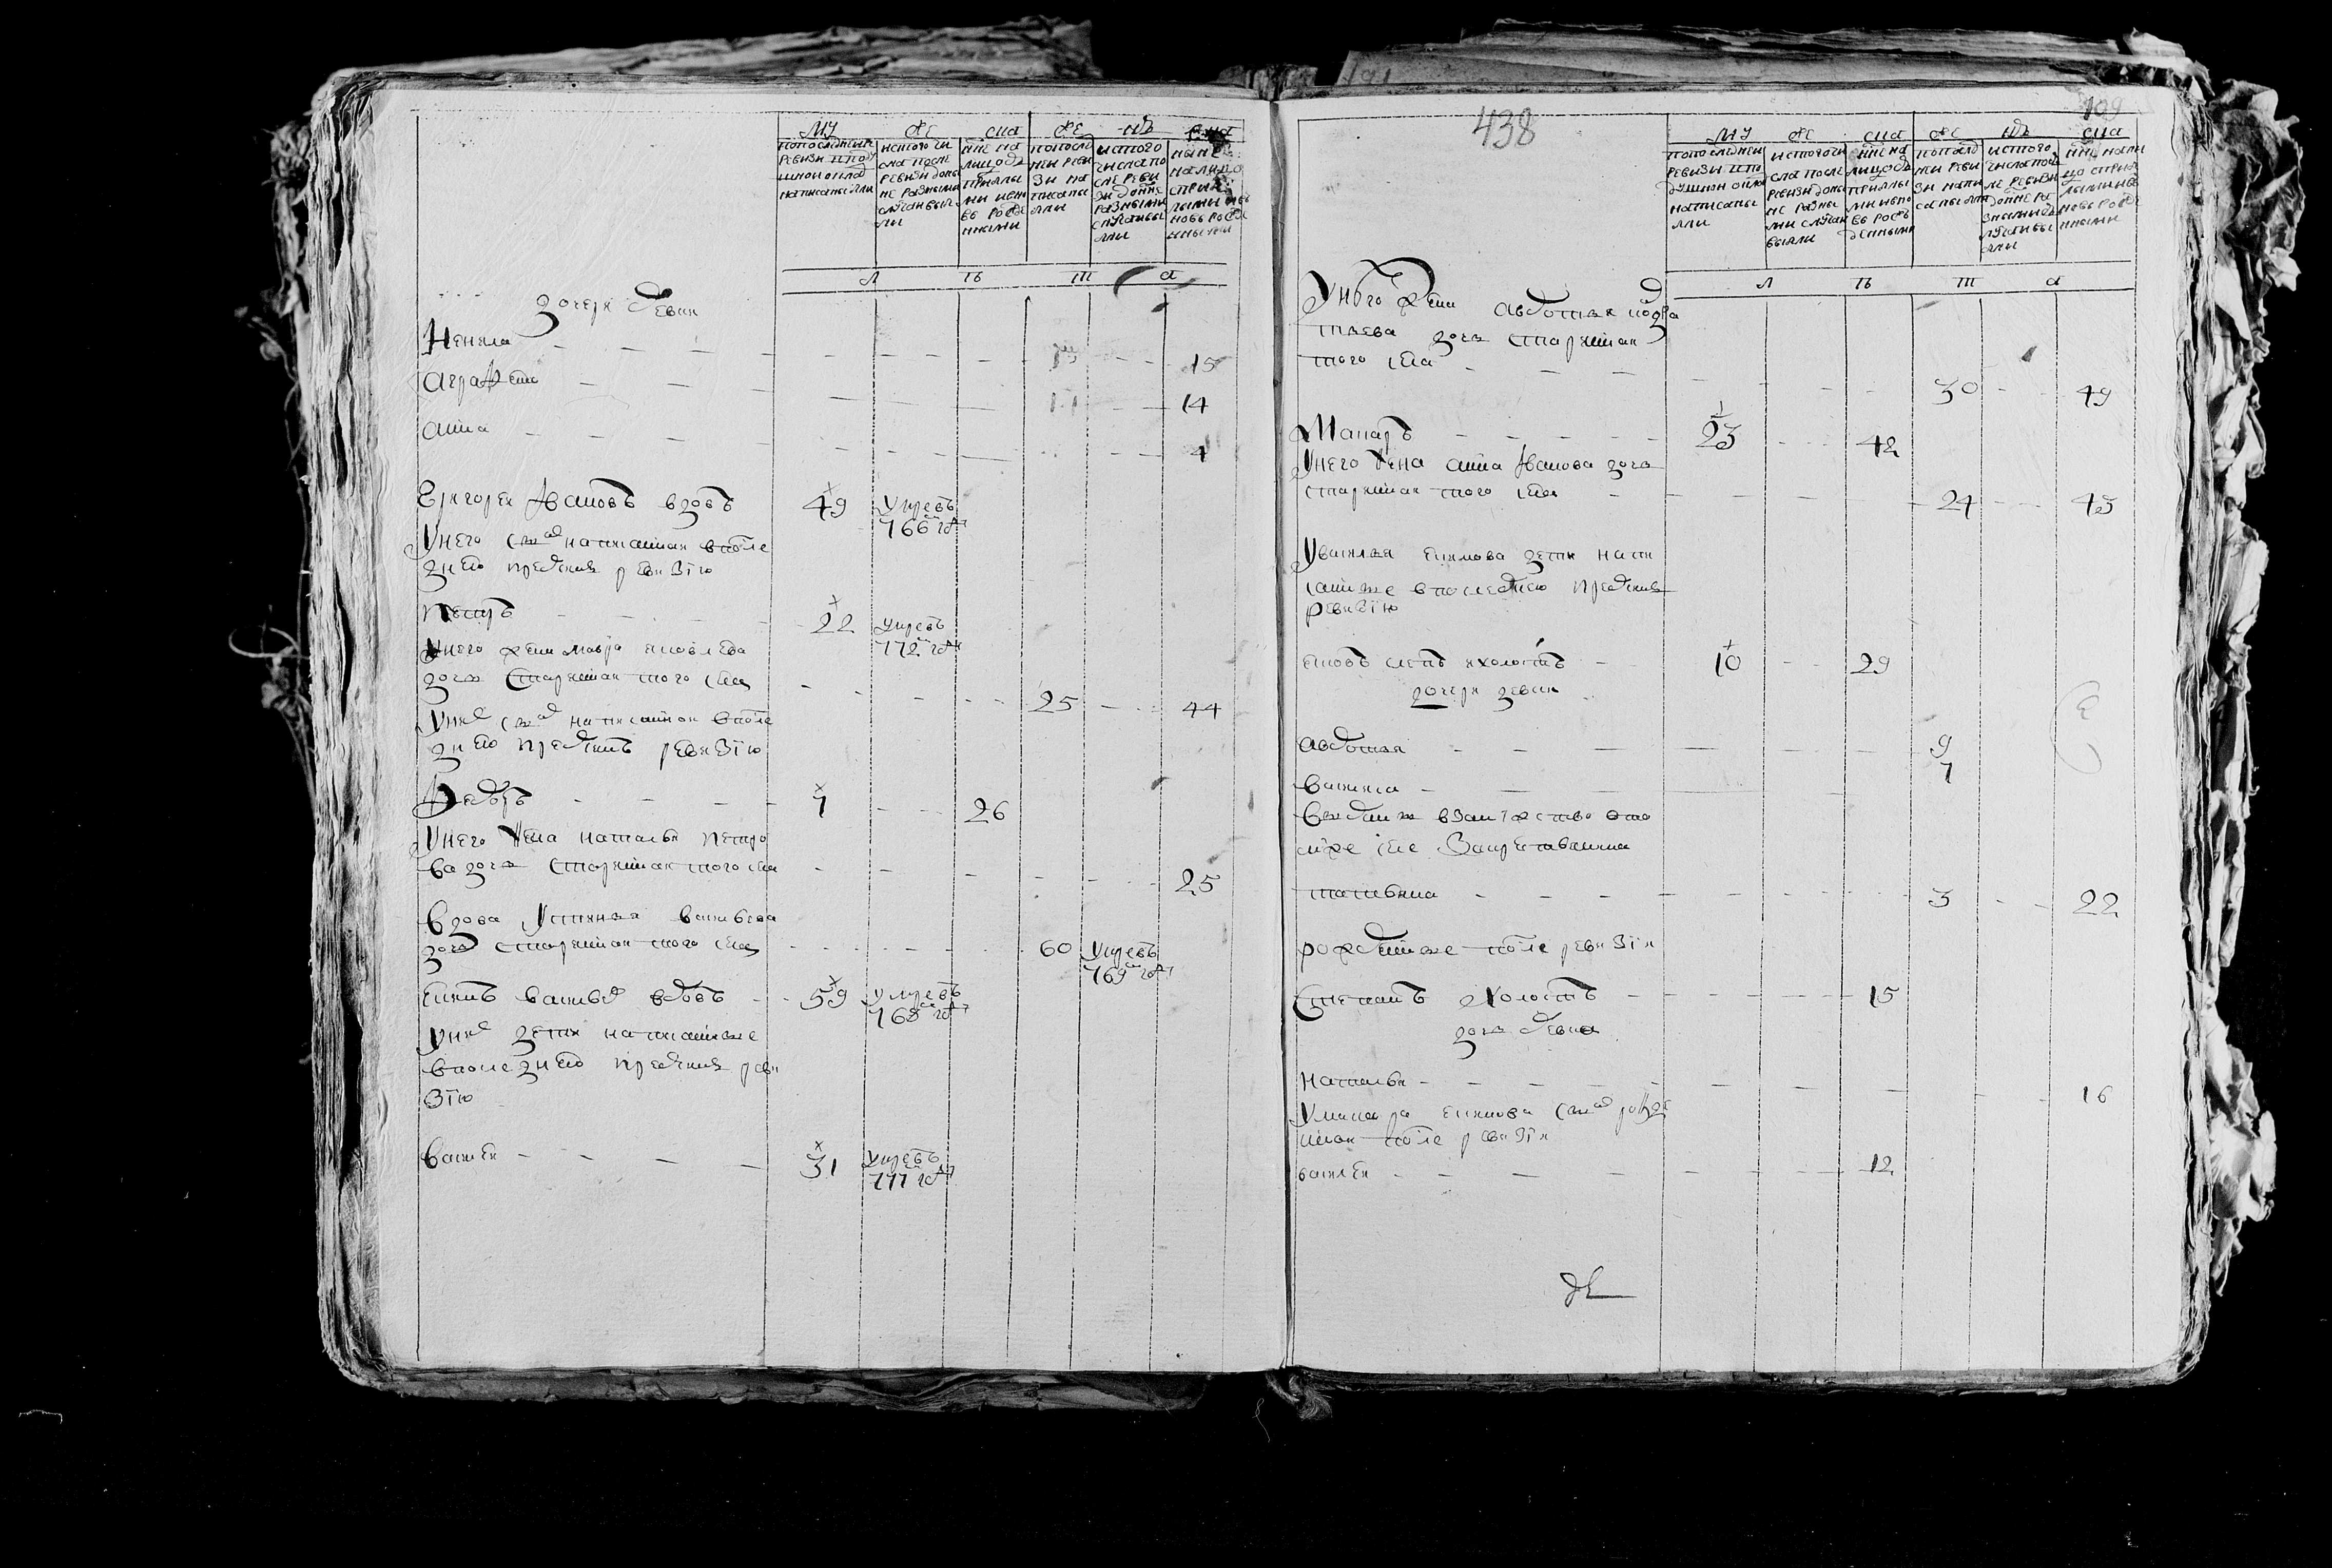 МУ ЖЕ СКА ЖЕ НЬ СКА
попоследней ревизи и поду шном окладе написаны были
ис того чи сла после ревизи доны не разными случаи выбы ли
ныне на лицо съ прибылы ми и вно вь рожде нными
попосле ней реви зи на писаны были
ис того числа по сле реви зи доныне разными случаи выбы ли
ныне на лицо с при былыми и вновь рожде нными
Л Ѣ Т А
дочери девки
Ненила - - - - 15
Аграфена - - - 14
анна - - - - 4
Григореи Ивановъ вдовъ 49 умре въ 766м году
У него сынъ написанной в после
днею пред сим ревизию
Петръ - - - 22 умре въ 772м году
У него жена мавра яковлева
дочь старинная того села - - - 25 - - 44
У них сынъ написанной в после
днею пред симъ ревизию
Федоръ - - - - 7 - - 26
У него жена наталья петро
ва дочь старинная того села - - - - - 25
Вдова Устинья васильева
дочь старинная того села - - - 60 умре въ 769м году
Екимъ васильевъ вдовъ - - 59 умре въ 768м году
У них дети написанные
в последнею пред сим реви
зию
василеи - - - - 31 умре въ 777м году
438
109
МУ ЖЕ СКА ЖЕ НЬ СКА
попоследней ревизи и по душном окладе написаны были
ис того чи сла после ревизи доны не разны ми случаи выбыли
ныне на лицо съ прибылы ми и вно вь рож денными
попослед ней реви зи напи саны были
ис того числа посл ле ревизи доныне ра зными с лучаи выбы ли
ныне нали цо с приб лыми и в новь рожде нными
Л Ѣ Т А
У него жена авдотья кодра
тьева дочь старинная
того села - - - 30 - - 49
Макаръ - - - - - 23 - - 42
У него жена анна Иванова дочь
старинная того села - - - - 24 - - 43
У василья екимова дети напи
санные в последнею пред сим
ревизию
яковъ слепъ и холостъ - - 10 - - 29
дочери девки
авдотья - - - - - 9
василиса - - - - 7
выданы в замужество
селе
татьяна - - - - - - 3 - - 22
рожденные после ревизии
Степанъ холостъ - - - - - 15
дочь девка
наталья - - - - - - - - 16
У макара екимова сынъ рожде
нной после ревизии
василеи - - - - - - 12